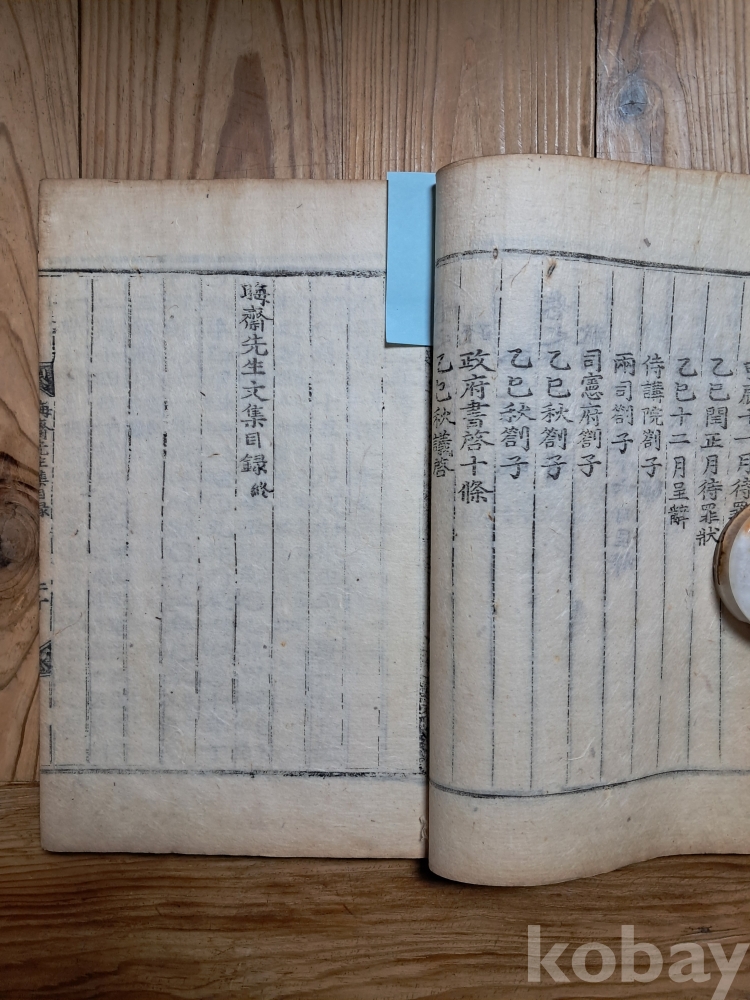 乙巳閏正月待罪狀
乙巳十二月呈辭
侍講院劄子
兩司劄子
司憲府劄子
乙巳秋劄子
乙巳秋劄子
政府書啓十條
乙巳秋議啓
晦齋先生文集目録 終
晦齋先生集目録
kobay